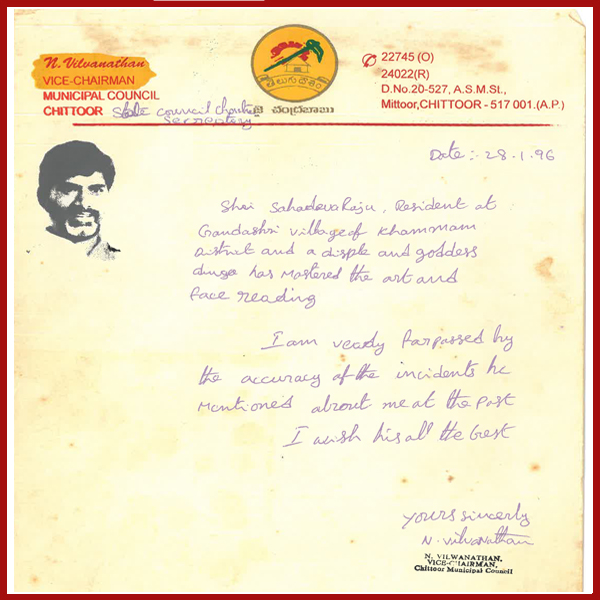 N. Vilvanathan
VICE-CHAIRMAN
MUNICIPAL COUNCIL
CHITTOOR
State council
Secreatary
తెలుగుదేశం
జై చంద్రబాబు
✆ 22745 (O)
24022(R)
D.No.20-527, A.S.M.St.,
Mittoor,CHITTOOR - 517 001.(A.P.)
Date :- 28.1.96
Shri SahadevaRaju, Resident at
Gandashri village of Khammam
District and a disple and goddess
durga has Mastered the art and
face reading
I am veardy farpassed by
the accuracy of the incidents he
Mentioned about me at the Past
I wish his all the best
yours sincerly
N. Vilvanathan
N. VILWANATHAN.
VICE-CHAIRMAN.
Chittoor Municipal Council